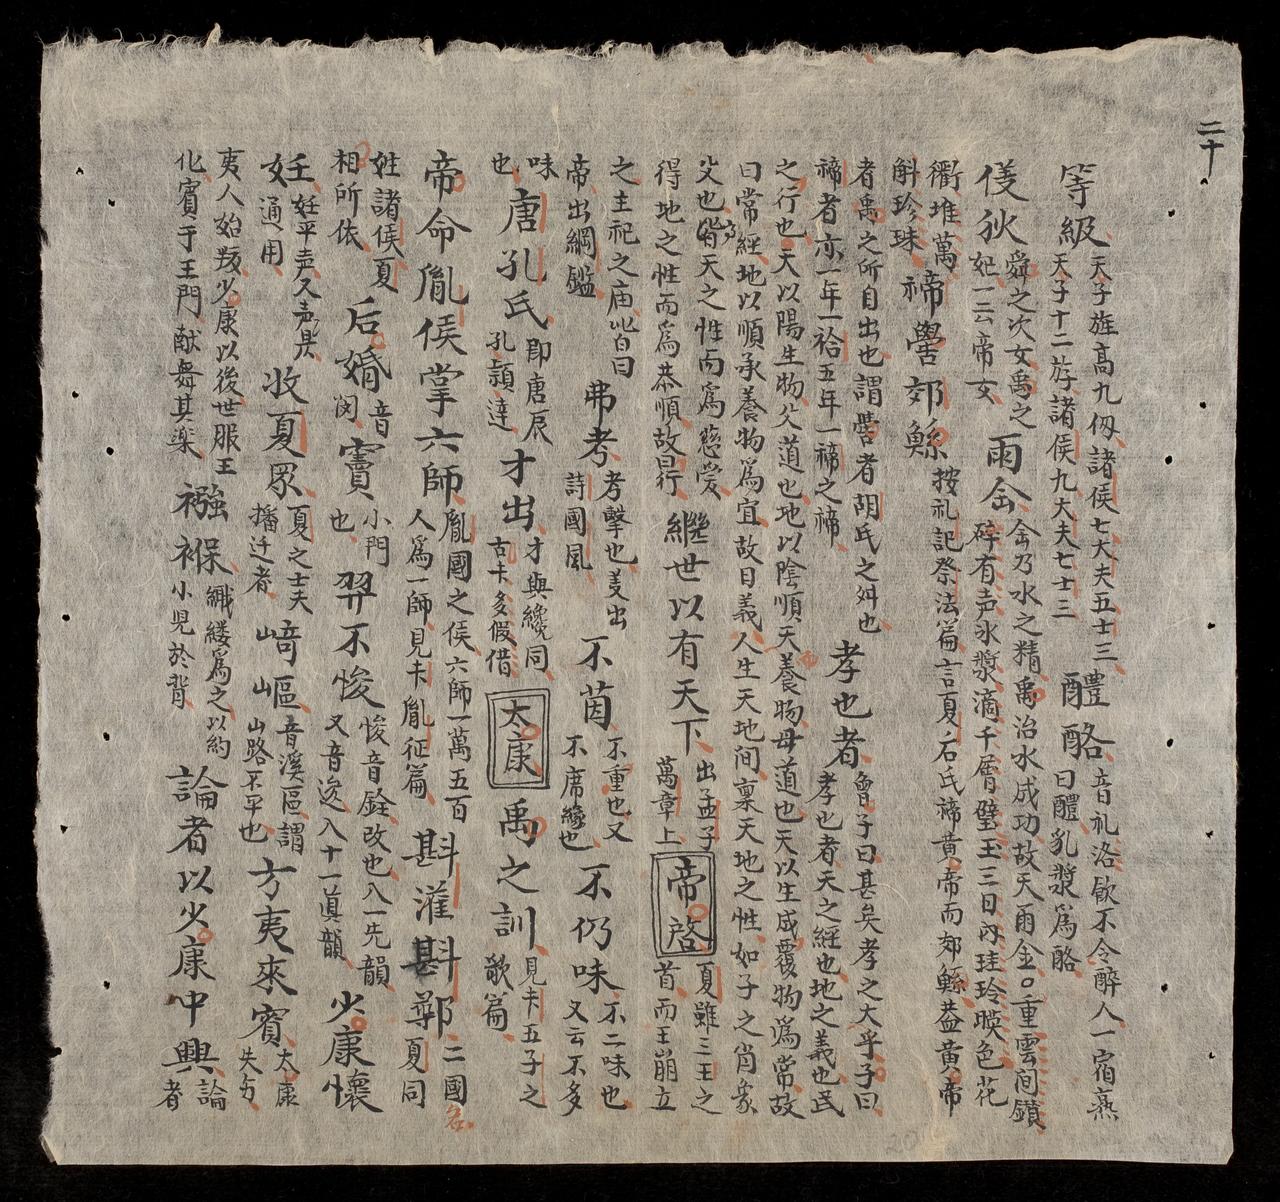 二十
等級 天子旌高九仭諸侯七大夫五士三 天子十二斿諸侯九大夫七士三 醴酪 音礼洛飲不令醉人一宿熹 曰醴乳漿爲酪
儀狄 舜之次女禹之 妃一云帝女 雨金 金乃水之精禹治水成功故天雨金○重雲间鎖 碎有声氷漿滴千層璧玉三日内珪玲暎色花
衢堆萬 斛珍珠 禘嚳郊鯀 按礼記祭法篇言夏后氏禘黄帝而郊鯀益黄帝
者禹之所自出也謂嚳者胡氏之舛也 禘者亦一年一祫五年一禘之禘 孝也者 曾子曰甚矣孝之大乎子曰 孝也者天之經也地之義也民
之行也天以陽生物父道也地以陰順天養物母道也天以生成覆物爲常故
曰常經地以順承養物爲宜故曰義人生天地间稟天地之性如子之肖象
父也天之性而爲慈愛 得地之性而爲恭順故 繼世以有天下 出孟子 萬章上 帝啓 夏雖三王之 首而王崩立
之主祀之庙皆曰 帝出綱鑑 弗考 考擊也 出 詩國風 不茵 不重也又 不席緣也 不仍味 不二味也 又云不多
味 也 唐孔氏 即唐辰 孔頴達 才出 才與纔同 古卞多假借 太康 禹之訓 見卞五子之 歌篇
帝命胤侯掌六師 胤國之侯六師一萬五百 人爲一師見卞胤征篇 斟灌斟鄩 二國名 夏同
姓諸侯夏 相所依 后婚 音 闵 竇 小門 也 羿不悛 悛音銓改也入一先韻 又音逡入十一真韻 少康懷
妊 妊平声又声 通用 收夏眾 夏之士夫 播迁者 﨑嶇 音溪區謂 山路不平也 方夷來賓 太康 失
夷人始叛少康以後世服王 化賓于王門献舞其楽 襁褓 織縷爲之以約 小児於背 論者以少康中興 論 者